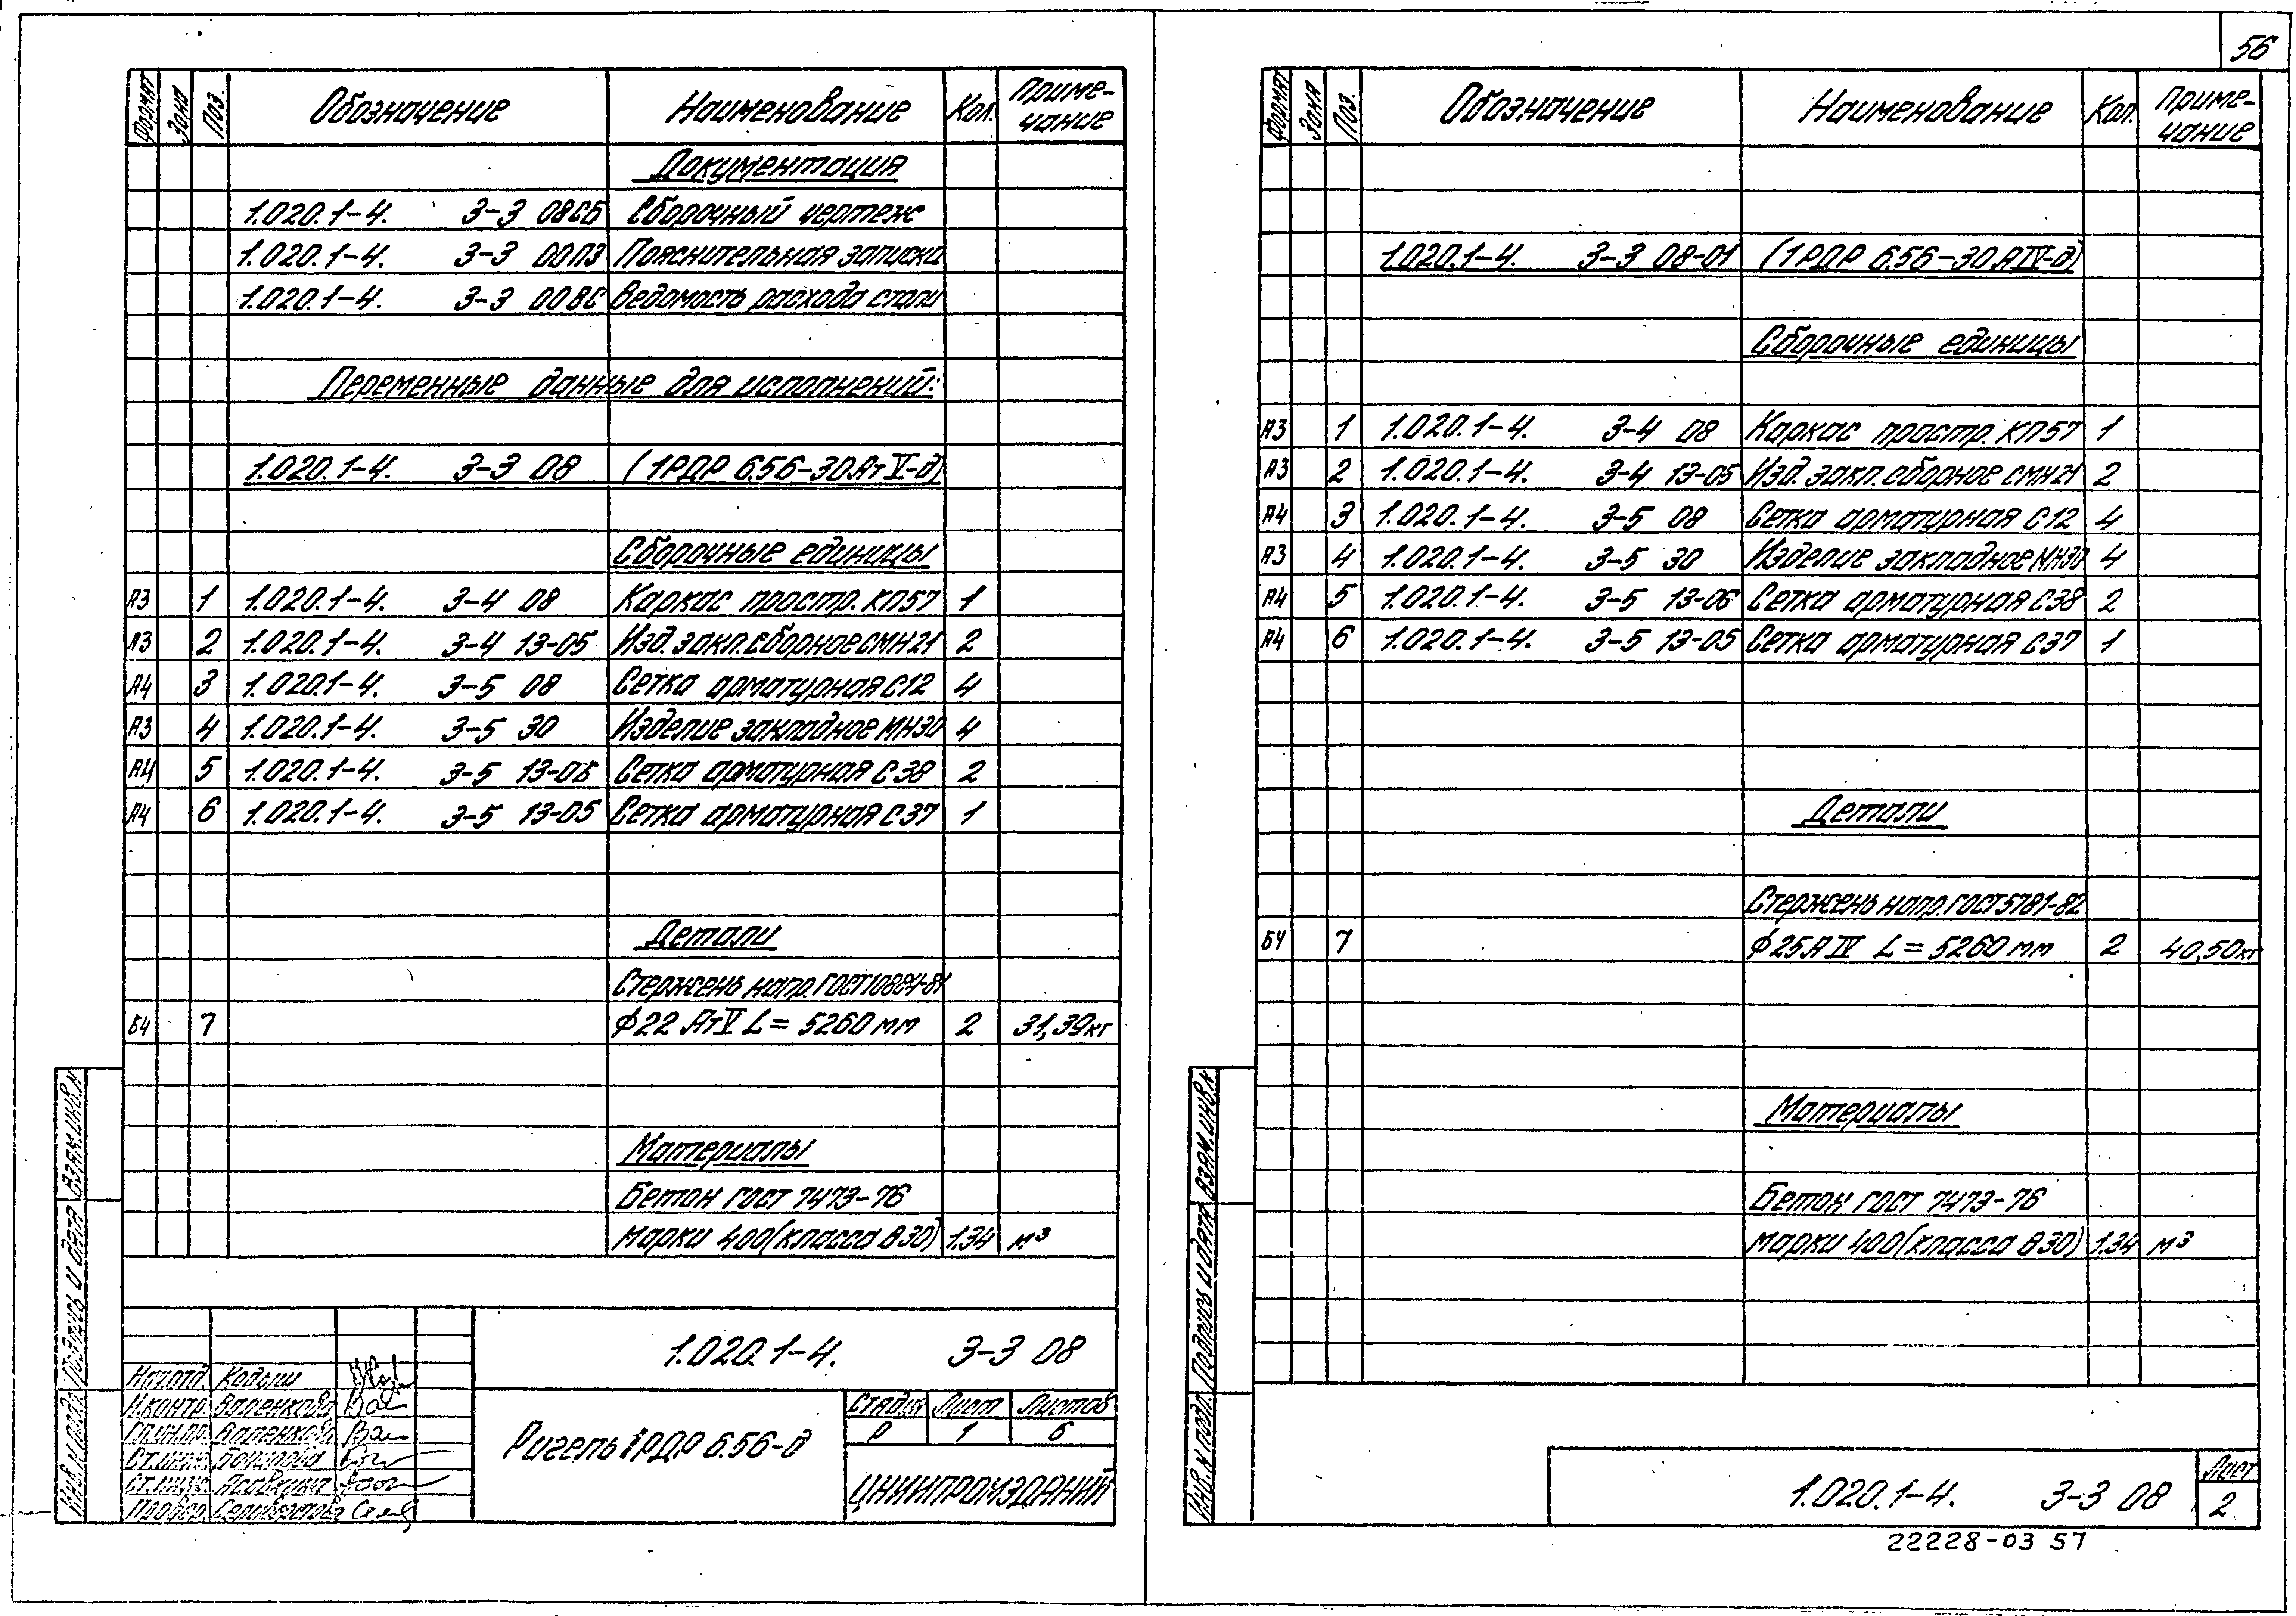 56
Формат Зона Поз. Обозначение Наименование Кол. Приме-
чание
Документация
1.020.1-4. 3-3 08СБ Сборочный чертеж
1.020.1-4. 3-3 00ПЗ Пояснительная записка
1.020.1-4. 3-3 00ВС Ведомость расхода стали
Переменные данные для исполнений:
1.020.1-4. 3-3 08 (1РДР 6.56-30.АтV-д)
Сборочные единицы
А3 1 1.020.1-4. 3-4 08 Каркас простр. КП57 1
А3 2 1.020.1-4. 3-4 13-05 Изд. закл. сборное СМН21 2
А4 3 1.020.1-4. 3-5 08 Сетка арматурная С12 4
А3 4 1.020.1-4. 3-5 30 Изделие закладное МН30 4
А4 5 1.020.1-4. 3-5 13-06 Сетка арматурная С38 2
А4 6 1.020.1-4. 3-5 13-05 Сетка арматурная С37 1
Детали
Стержень напр. ГОСТ 10884-81
БЧ 7 ф22 АтV L = 5260 мм 2 31,39кг
Материалы
Бетон ГОСТ 7473-76
марки 400 (класса В30) 1.34 м³
Взам. инв. N
Подпись и дата
Инв. N подл.
1.020.1-4. 3-3 08
Нач.отд. Кодыш
Н.контр. Валенкова
Гл.ин.пр. Валенкова
Ст.инж.
Ст.инж.
Провер. Селиверстова
Ригель 1РДР 6.56-д
Стадия Лист Листов
Р 1 6
ЦНИИПРОМЗДАНИЙ
Формат Зона Поз. Обозначение Наименование Кол. Приме-
чание
1.020.1-4. 3-3 08-01 (1РДР 6.56-30.АIV-д)
Сборочные единицы
А3 1 1.020.1-4. 3-4 08 Каркас простр. КП57 1
А3 2 1.020.1-4. 3-4 13-05 Изд. закл. сборное СМН21 2
А4 3 1.020.1-4. 3-5 08 Сетка арматурная С12 4
А3 4 1.020.1-4. 3-5 30 Изделие закладное МН30 4
А4 5 1.020.1-4. 3-5 13-06 Сетка арматурная С38 2
А4 6 1.020.1-4. 3-5 13-05 Сетка арматурная С37 1
Детали
Стержень напр. ГОСТ 5781-82
БЧ 7 ф25А IV L = 5260 мм 2 40,50кг
Материалы
Бетон ГОСТ 7473-76
марки 400 (класса В30) 1.34 м³
Взам. инв. N
Подпись и дата
Инв. N подл.
1.020.1-4. 3-3 08
Лист
2
22228-03 57